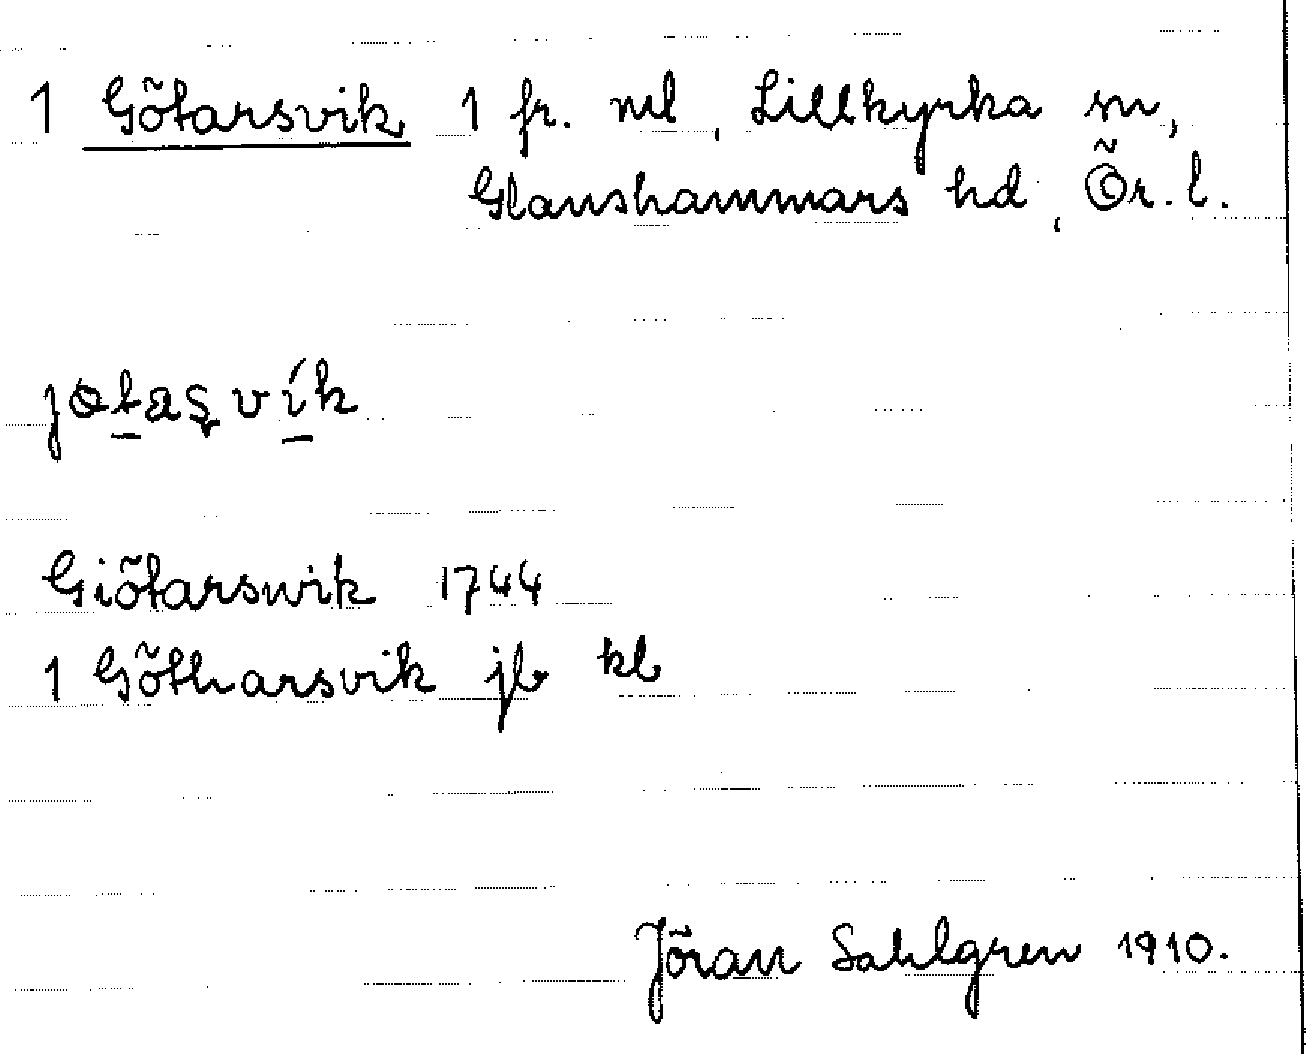 1 Götarsvik 1 fr. ml, Lillkyrka sn,
Glanshammars hd, Ör. l.
jɵtaʂvík
Giötarswik 1744
1 Götharsvik jb kb
Jöran Sahlgren 1910.